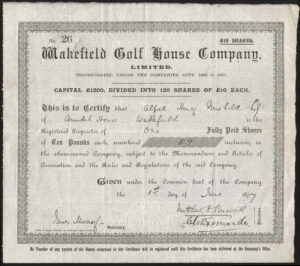 No. 26
£10 SHARES.
Wakefield Golf House Company,
LIMITED.
INCORPORATED UNDER THE COMPANIES ACTS, 1862 to 1890.
CAPITAL £1200, DIVIDED INTO 120 SHARES OF £10 EACH.
This is to Certify that Alfred Henry Esq
of House Wakefield is the
Registered Proprietor of One Fully Paid Shares
of Ten Pounds each, numbered 57 inclusive,
in the above-named Company, subject to the Memorandum and Articles of
Association and the Rules and Regulations of the said Company.
Given under the Common Seal of the Company
the 1st day of June
Secretary.
No Transfer of any portion of the Shares comprised in this Certificate will be registered until this Certificate has been delivered at the Company's Office.